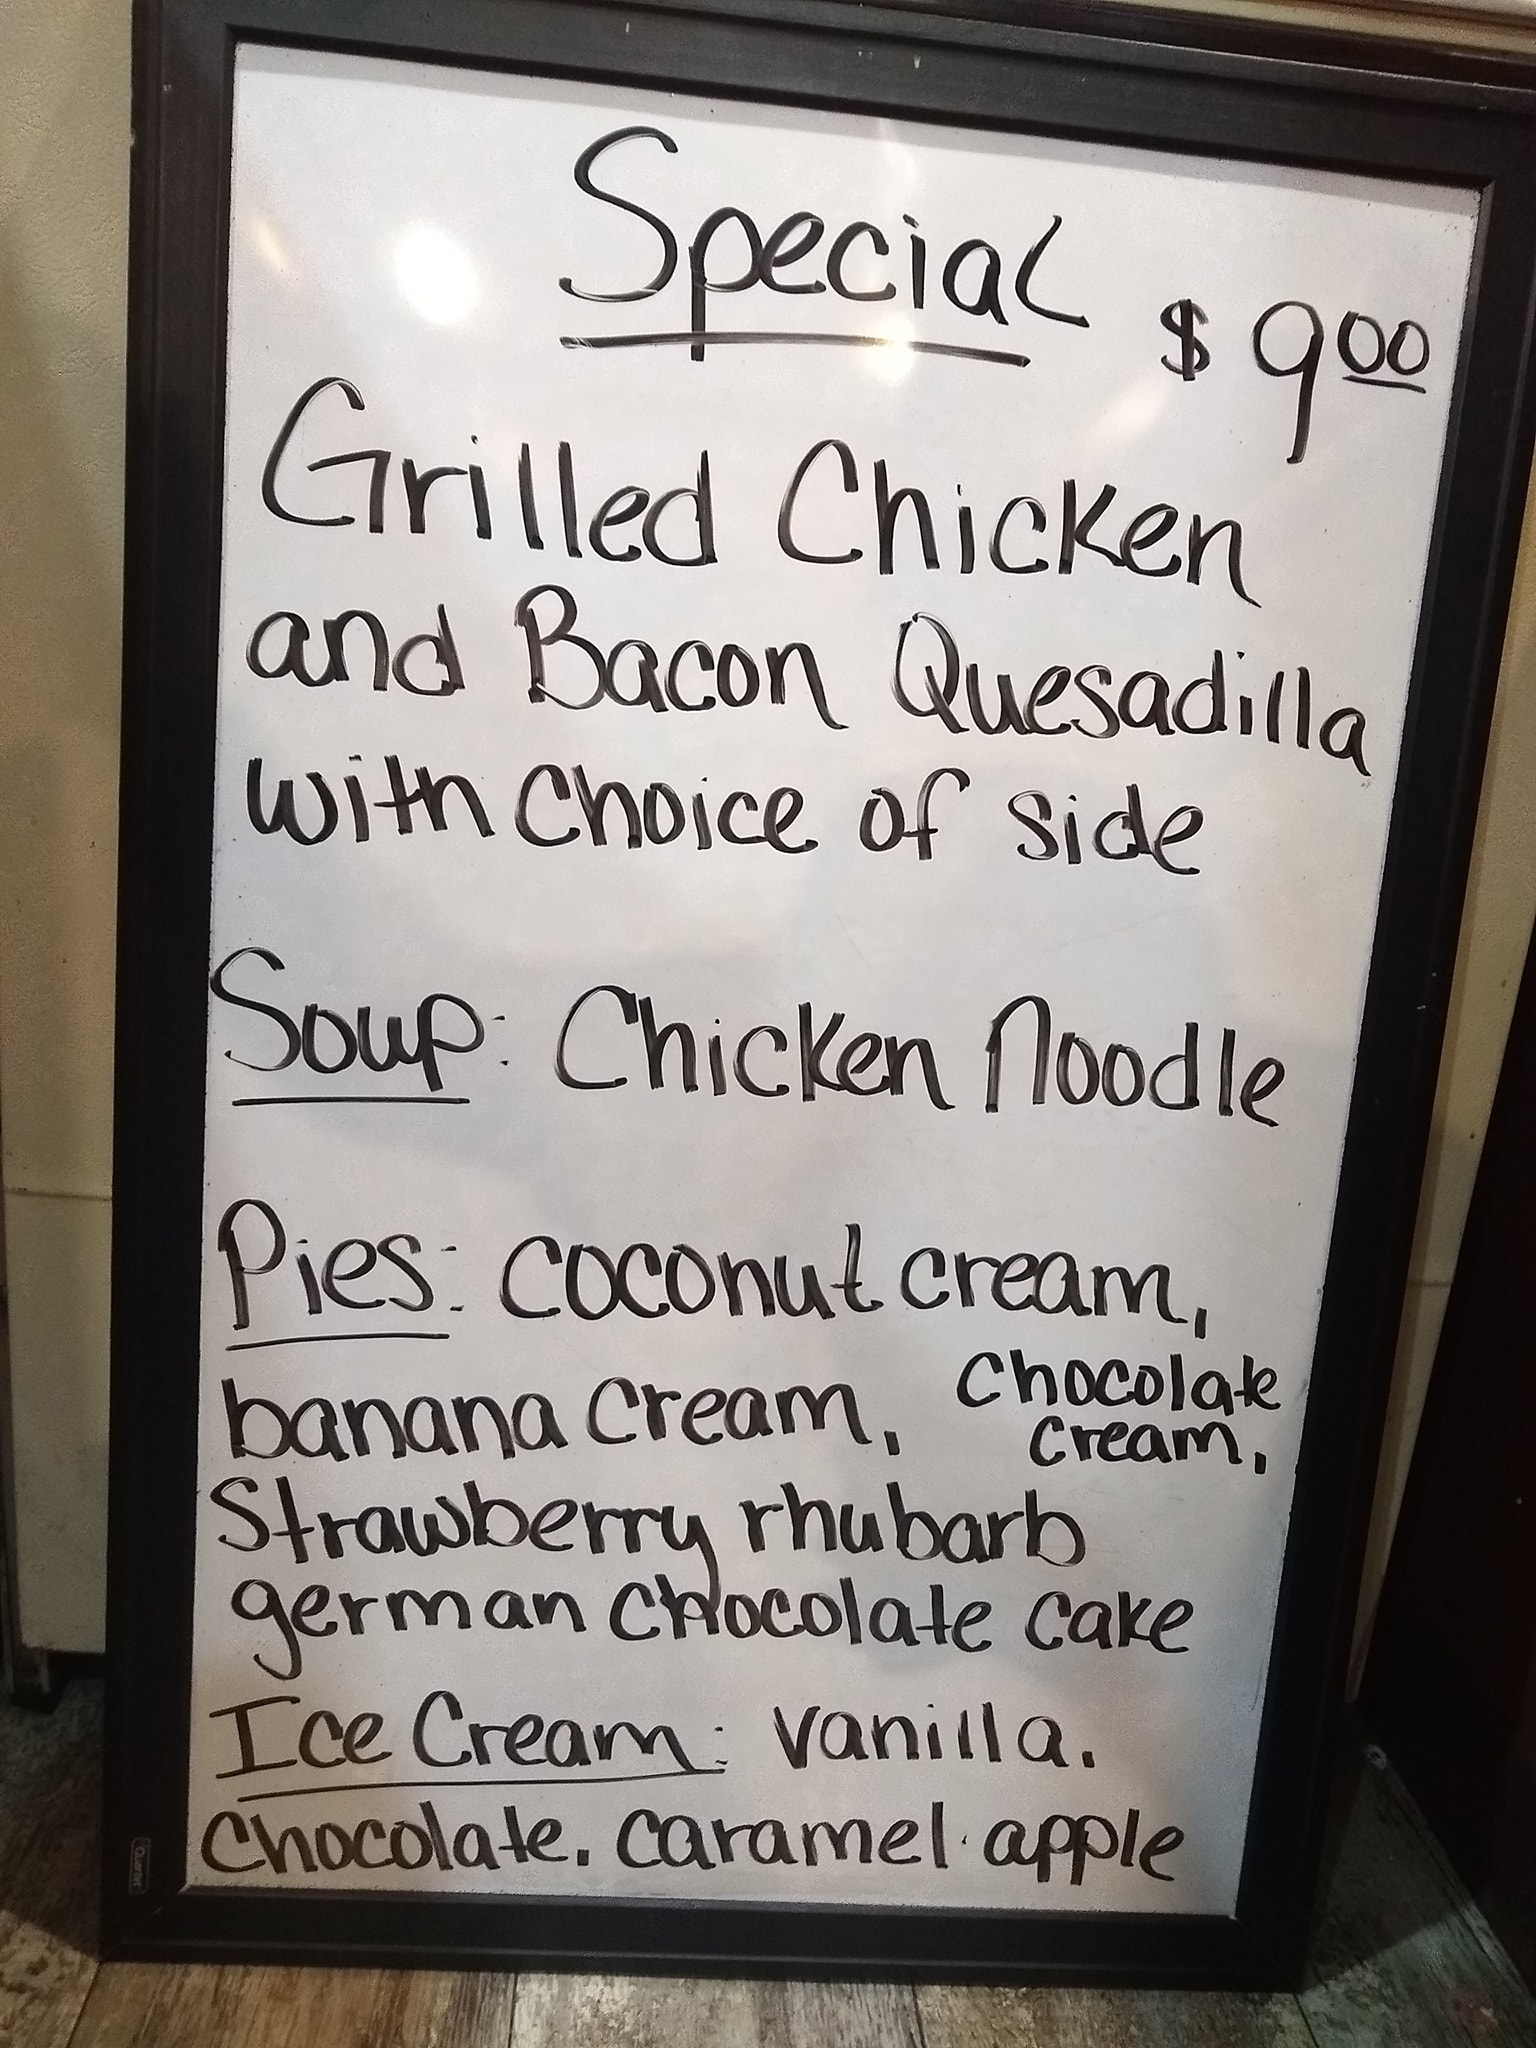 Special
$ 9.00
Grilled Chicken
and Bacon Quesadilla
with choice of side
Soup: Chicken Noodle
Pies: coconut cream,
banana cream, chocolate
cream,
Strawberry rhubarb
german chocolate cake
Ice Cream: vanilla.
chocolate. caramel apple
Quartet